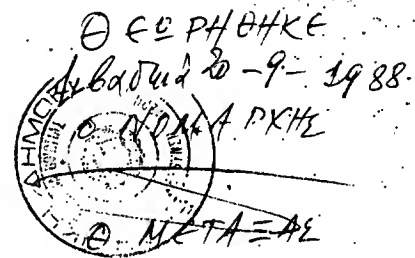 ΘΕΩΡΗΘΗΚΕ
Λιβαδειά 20-9-1988
Ο ΝΟΜΑΡΧΗΣ
Θ ΜΕΤΑΞΑΣ